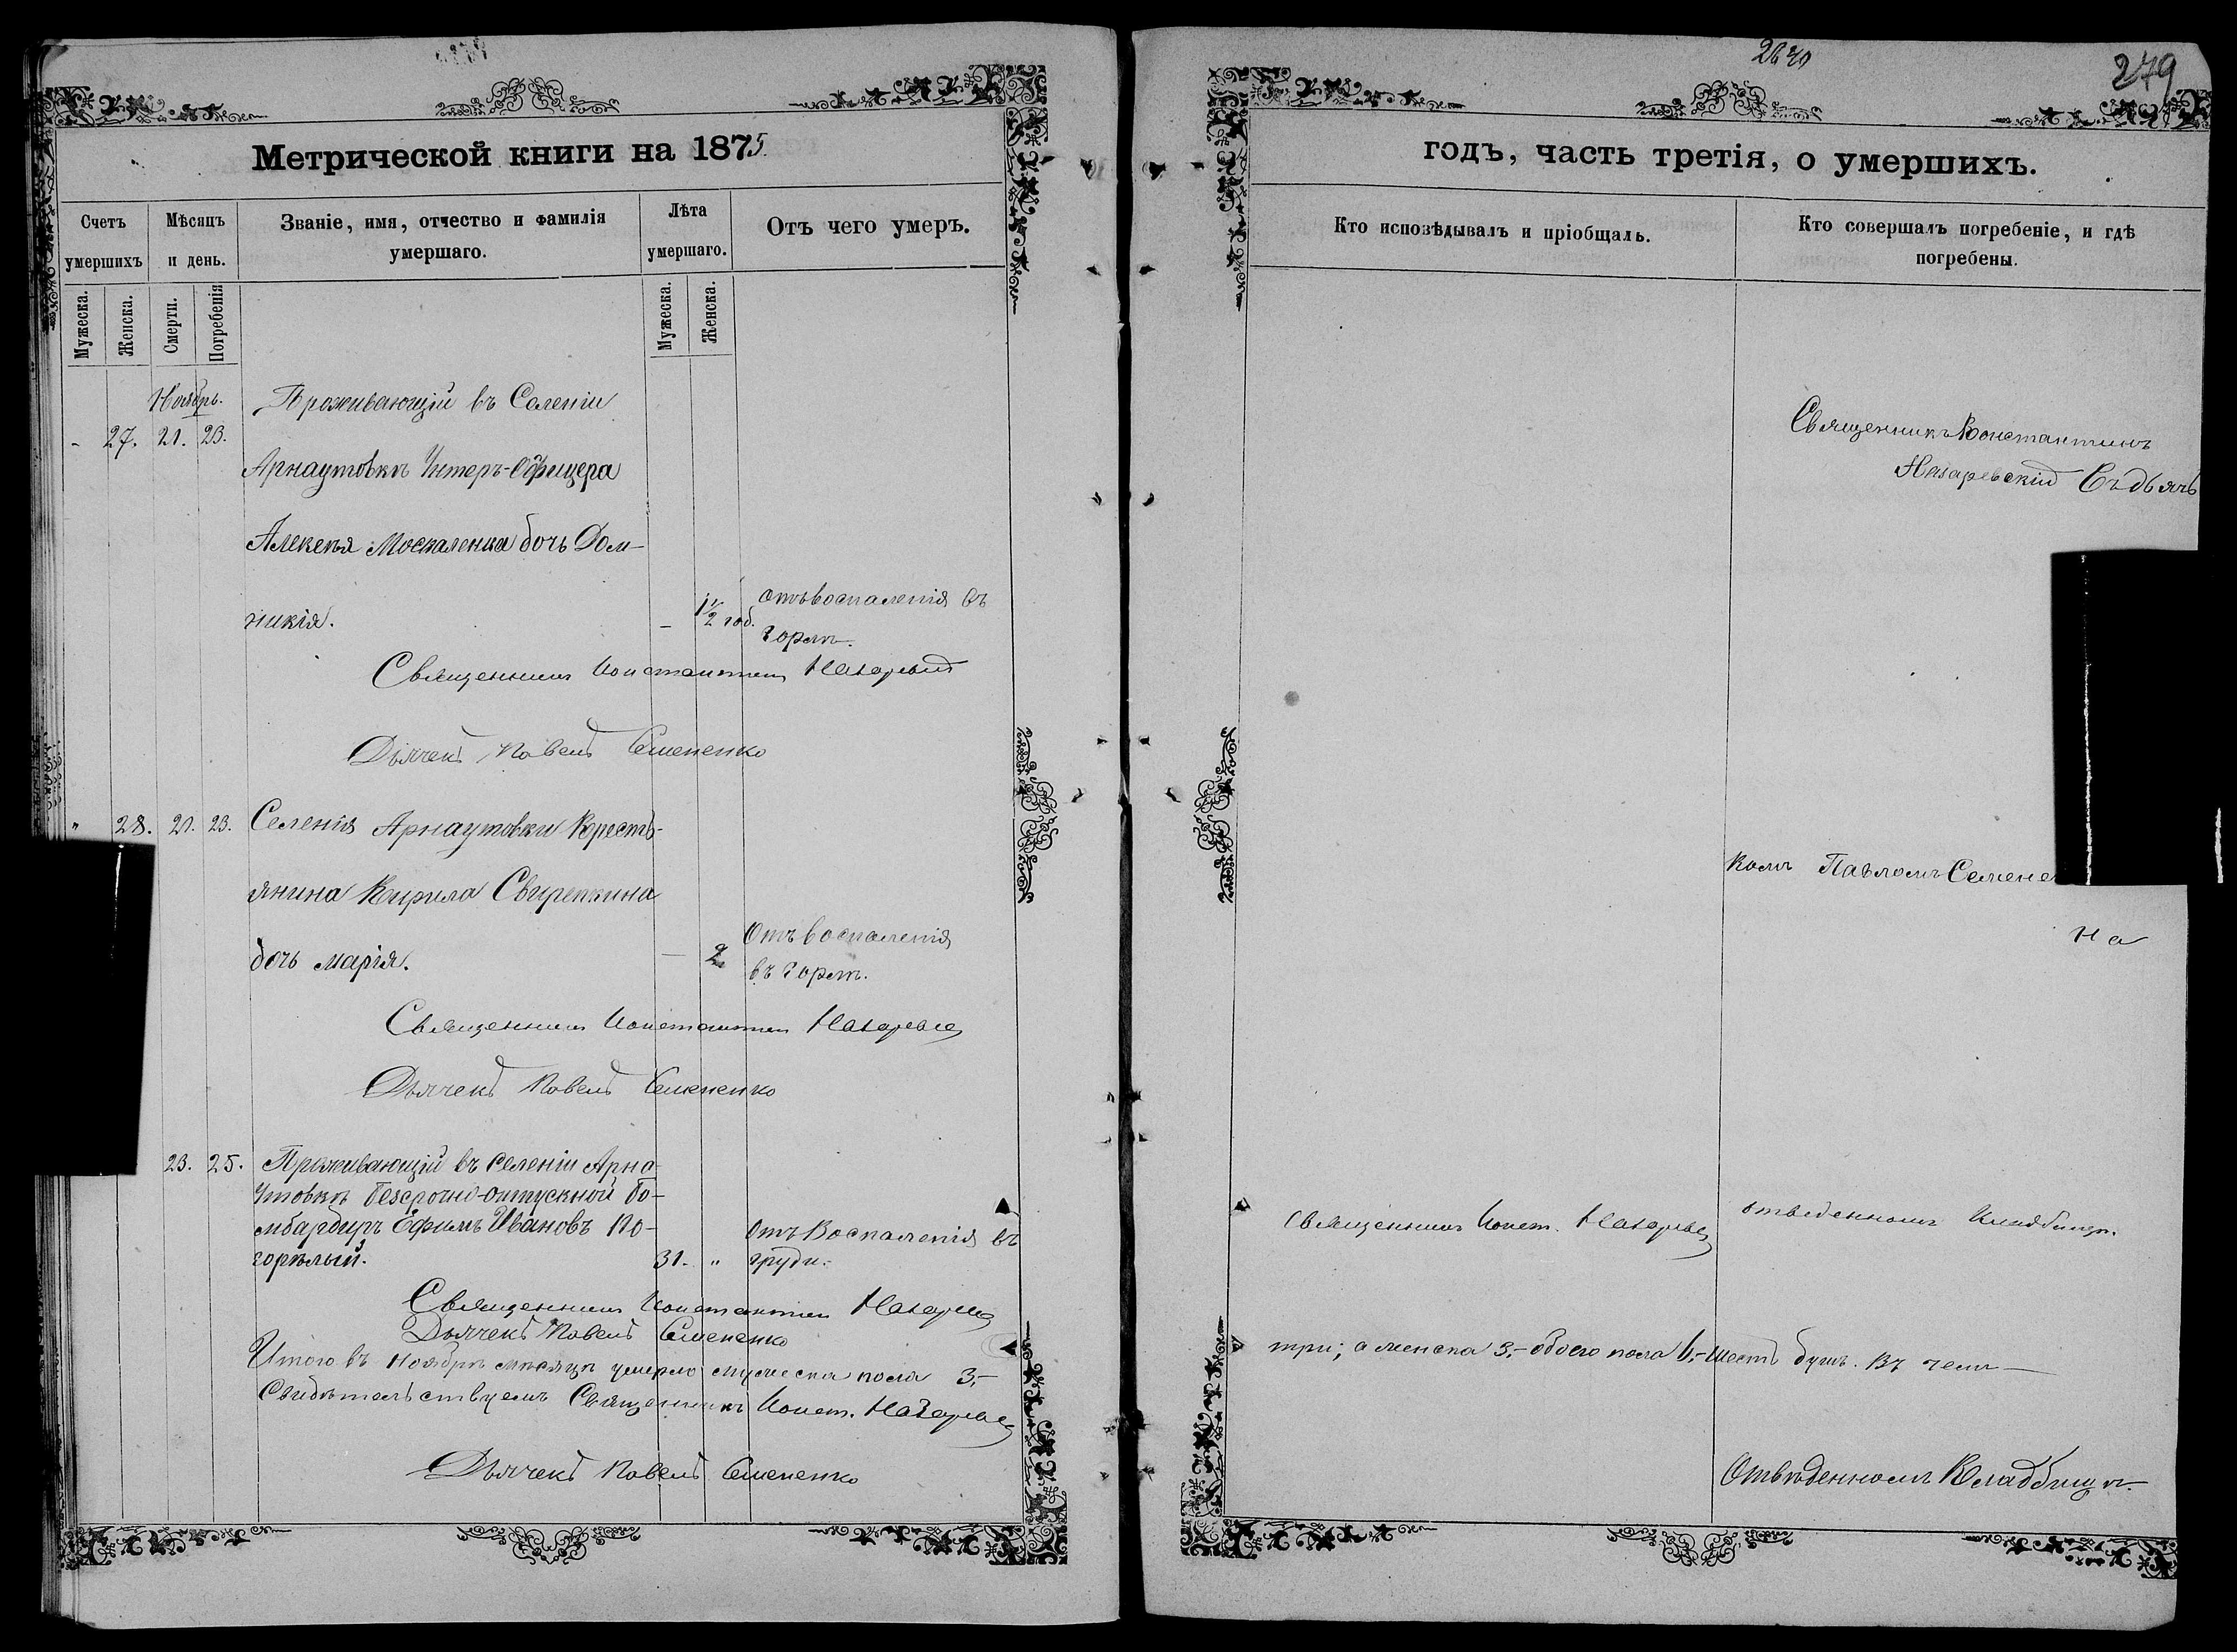 2640
279
Метрической книги на 1875.
годъ, часть третія, о умершихъ.
Счетъ умершихъ
Мѣсяцъ и день.
Званіе, имя, отчество и фамилія умершаго.
Лѣта умершаго.
Отъ чего умеръ.
Кто исповѣдывалъ и пріобщалъ.
Кто совершалъ погребеніе, и гдѣ погребены.
Мужеска.
Женска.
Смерти.
Погребенія
Мужеска.
Женска.
Ноябрь.
- 27. 21. 23.
Проживающій въ Селеніи
Арнаутовкѣ Унтеръ-Офицера
Алексѣя Москаленка дочь Дом-
никія.
- 1 1/2 год. отъ воспаленія въ
горлѣ.
Священникъ Константинъ Назаревскій
Дьячекъ Павелъ Семененко
Священникъ Константинъ
Назаревскій Съ дьяч
" 28. 21. 23. Селенія Арнаутовки Кресть-
янина Кирила Свирепкина
дочь Марія.
— 2 Отъ воспаленія
въ горлѣ.
Священникъ Константинъ Назаревскій
Дьячекъ Павелъ Семененко
комъ Павломъ Семене
На
23. 25. Проживающій въ селеніи Арна-
утовкѣ безсрочно-отпускной бо-
мбардиръ Ефимъ Ивановъ По-
горѣлый.
31. " отъ Воспаленія въ
груди.
Священникъ Константинъ Назаревскій
Дьячекъ Павелъ Семененко
Священникъ Конст. Назаревскій
отведенномъ Кладбищѣ.
Итого въ Ноябрѣ мѣсяцѣ умерло мужеска пола 3,-
три; а женска 3,- обоего пола 6,- шесть душъ. Въ чемъ —
Свидѣтельствуемъ Священникъ Конст. Назаревскій
Дьячекъ Павелъ Семененко
Отвѣденномъ Кладбищѣ.